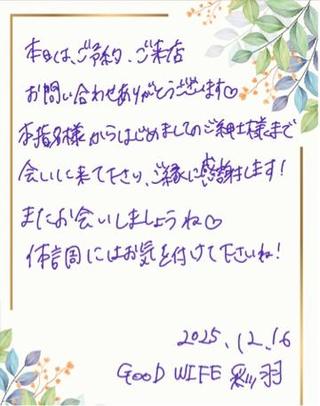 本日は、ご予約、ご来店
お問い合わせありがとうございます♡
本指名様からはじめましてのご紳士様まで
会いに来て下さり、ご縁に感謝します!
またお会いしましょうね♡
体調にはお気を付けて下さいね!
2025.12.16
GOOD WIFE 彩羽